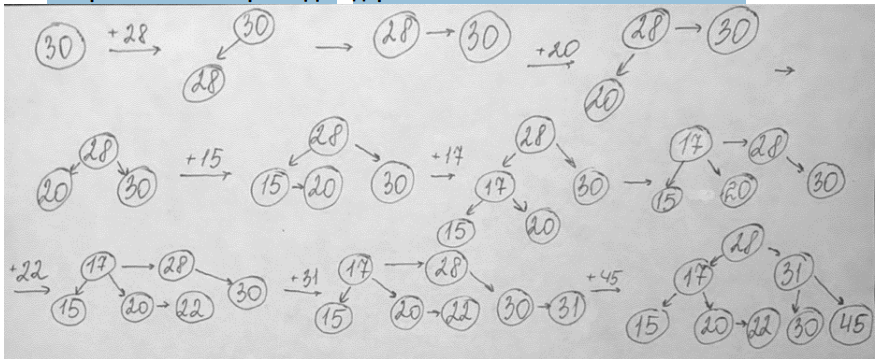 30 +28 30 28 28 30 +20 28 30 20
28 20 30 +15 28 15 20 30 +17 28 17 30 15 20 17 28 15 20 30
+22 17 28 15 20 22 30 +31 17 28 15 20 22 30 31 +45 28 17 31 15 20 22 30 45